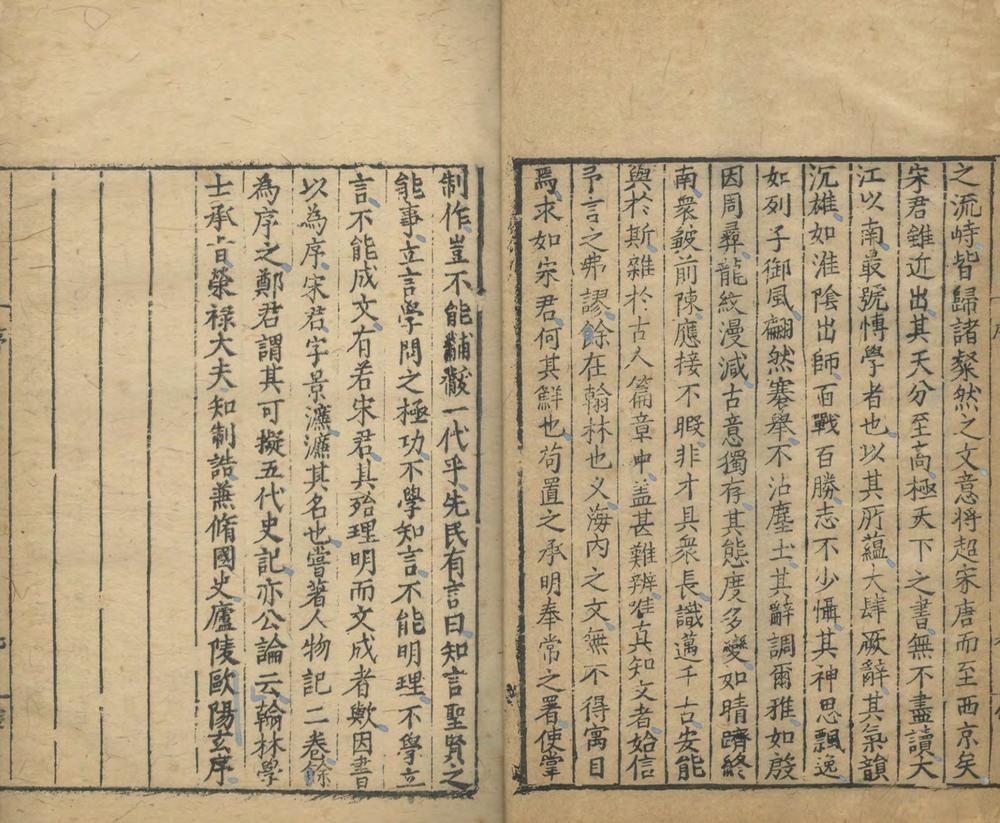 之流峙皆歸諸粲然之文意將超宋唐而至西京矣
宋君雖近出其天分至高極天下之書無不盡讀大
江以南最號愽學者也以其所蘊大肆厥辭其氣韻
沉雄如淮陰出師百戰百勝志不少懾其神思飄逸
如列子御風翩然褰舉不沾塵土其辭調爾雅如殷
因周彞龍紋漫滅古意獨存其態度多變如晴躋終
南衆皺前陳應接不暇非才具衆長識邁千古安能
與於斯雜於古人篇章中盖甚難辨唯真知文者始信
予言之弗謬餘在翰林也义海内之文無不得寓目
焉求如宋君何其鮮也苟置之承明奉常之署使掌
制作豈不能黼黻一代乎先民有言曰知言聖賢之
能事立言學問之極功不學知言不能明理不學立
言不能成文有若宋君其殆理明而文成者歟因書
以為序宋君字景濂濂其名也嘗著人物記二卷餘
為序之鄭君謂其可擬五代史記亦公論云翰林學
士承㫖榮祿大夫知制誥兼脩國史廬陵歐陽玄序